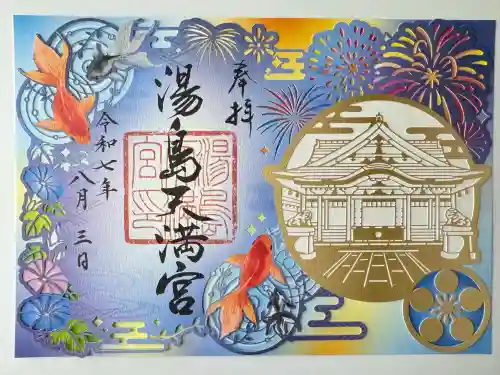 奉拝
湯島天満宮
令和七年
八月三日